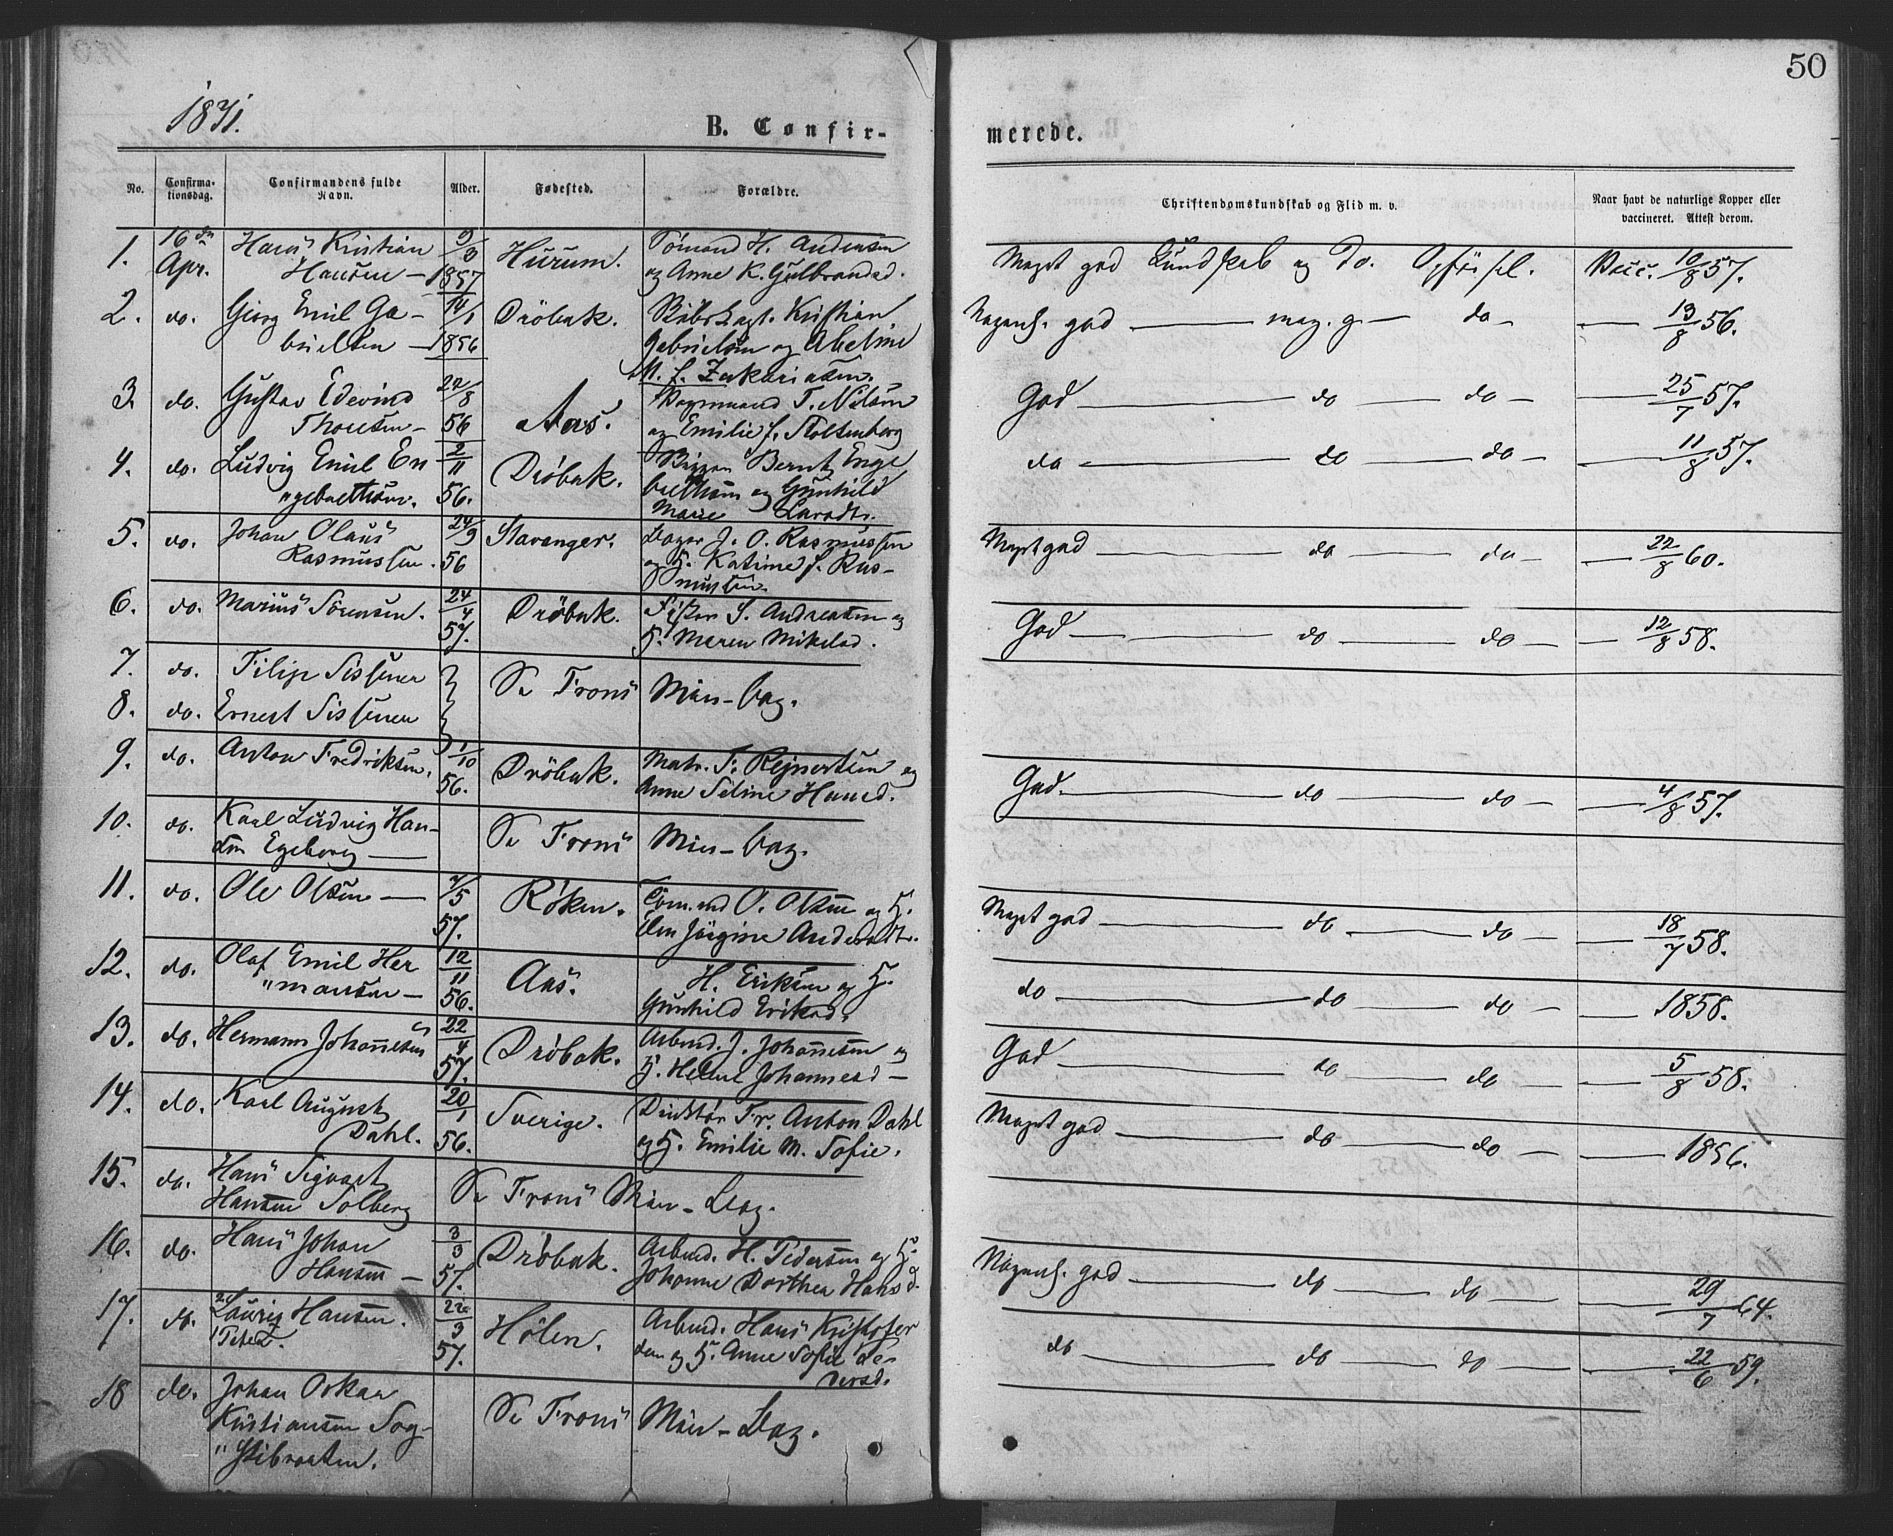 50
1871.
B. Confir-
merede.
No.
Confirma-
tionsdag.
Confirmandens fulde
Navn.
Alder.
Fødested.
Forældre.
Christendomskundskab og Flid m. v.
Naar havt de naturlige Kopper eller
vaccineret. Attest derom.
1. 16de Apr. Hans Kristian Hansen — 9/3 1857 Hurum. Sömand H. Andersen og Anne K. Gulbrandsd. Meget god Kundskab og do. Opförsel. Vacc. 10/8 57.
2. do. Georg Emil Gabrielsen — 14/1 1856 Dröbak. Kristian Gabrielsen og Abeline M. f. Zakariasen. Nogenl. god — meg. g — do — — 13/8 56.
3. do. Gustav Edevind Thoresen — 22/8 56 Aas. T. Nilsen og Emilie f. Stoltenberg God — do — do — — 25/7 57.
4. do. Ludvig Emil En
"gebrethsen. 2/11 56. Dröbak. Bernt Engebrethsen og Gunhild Marie Larsdtr. do — do — do — — 11/8 57.
5. do. Johan Olaus Rasmussen. 24/9 56 Stavanger. J. O. Rasmussen og H. Katrine f. Rasmussen. Meget god — do — do — — 22/8 60.
6. do. Marius Sörensen. 24/4 57. Dröbak. Fisker S. Andreasen og H. Maren Mikelsd. God — do — do — — 12/8 58.
7. do. Filip Sissener
8. do. Ernest Sissener Se Frons Min-bog.
9. do. Anton Fredriksen. 1/10 56. Dröbak. Matr. F. Rejnertsen og Anne Seline Hansd. God. — do — do — — 4/8 57.
10. do. Karl Ludvig Hansen Egeberg — Se Frons Min-bog.
11. do. Ole Olsen — 2/5 57. Röken. Töm.md O. Olsen og H. Elen Jörgine Andersdtr. Meget god — do — do — — 18/7 58.
12. do. Olaf Emil Her
"mansen — 12/11 56. Aas. H. Eriksen og H. Gunhild Eriksd. do — do — do — — 1858.
13. do. Hermann Johannesen 22/4 57. Dröbak. Arbmd. J. Johannesen og H. Helene Johannesd — God — do — do — — 5/8 58.
14. do. Karl August Dahl. 20/1 56. Sverige. Direktör Fr. Anton Dahl og H. Emilie M. Sofie. Meget god — do — do — — 1856.
15. do. Hans Sigvart Hansen Solberg Se Frons Min-Bog.
16. do. Hans Johan Hansen — 3/3 57. Dröbak. Arbmd. H. Pedersen og H. Johanne Dorthea Hansd. Nogenl. god — do — do — — 29/7 64.
17. do. Laurits Hansen. Peter 22/3 57. Hölen. Arbmd. Hans Kristofersen og H. Anne Sofie Pedersd. do — do — do — — 22/6 59.
18 do. Johan Oskar Kristiansen Sog-
"stibraaten. Se Frons Min-Bog.